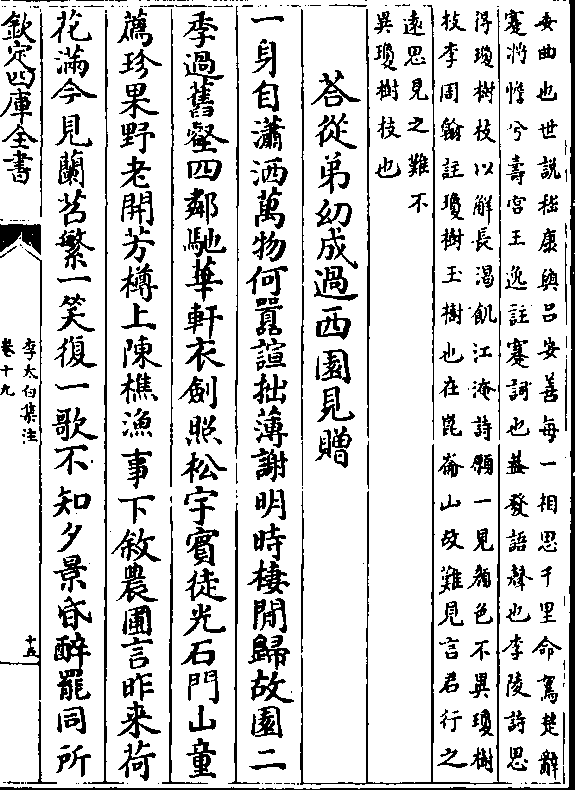 委曲也世說嵇康與吕安善每一相思千里命駕楚辭
蹇將憺兮壽宮王逸註蹇詞也葢發語聲也李陵詩思
得瓊樹枝以解長渴飢江淹詩願一見顔色不異瓊樹
枝李周翰註瓊樹玉樹也在崑崙山故難見言君行之
遠思見之難不
異瓊樹枝也
荅從弟幼成過西園見贈
一身自瀟洒萬物何囂諠拙薄謝明時棲閒歸故園二
季過舊壑四鄰馳華軒衣劒照松宇賓徒光石門山童
薦珍果野老開芳樽上陳樵漁事下敘農圃言昨来荷
花滿今見蘭苕繁一笑復一歌不知夕景昏醉罷同所
欽定四庫全書
李太白集注
卷十九
十五